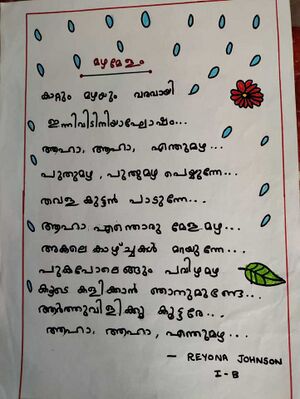 മഴമേളം
കാറ്റും മഴയും വരവായി
ഇന്നിവിടിനിയാഘോഷം...
ആഹാ, ആഹാ, എന്തുമഴ...
പുതുമഴ, പുതുമഴ പെയ്യുന്നേ...
തവള കുട്ടൻ പാടുന്നേ...
ആഹാ എന്തൊരു മേളമഴ...
അകലെ കാഴ്ച്ചകൾ മറയുന്നേ...
പുകപോലെങ്ങും പവിഴമഴ
കൂടെ കളിക്കാൻ ഞാനുമുണ്ടേ...
ആർത്തുവിളിക്കൂ കൂട്ടരേ...
ആഹാ, ആഹാ, എന്തുമഴ...
- REYONA JOHNSON
I-B